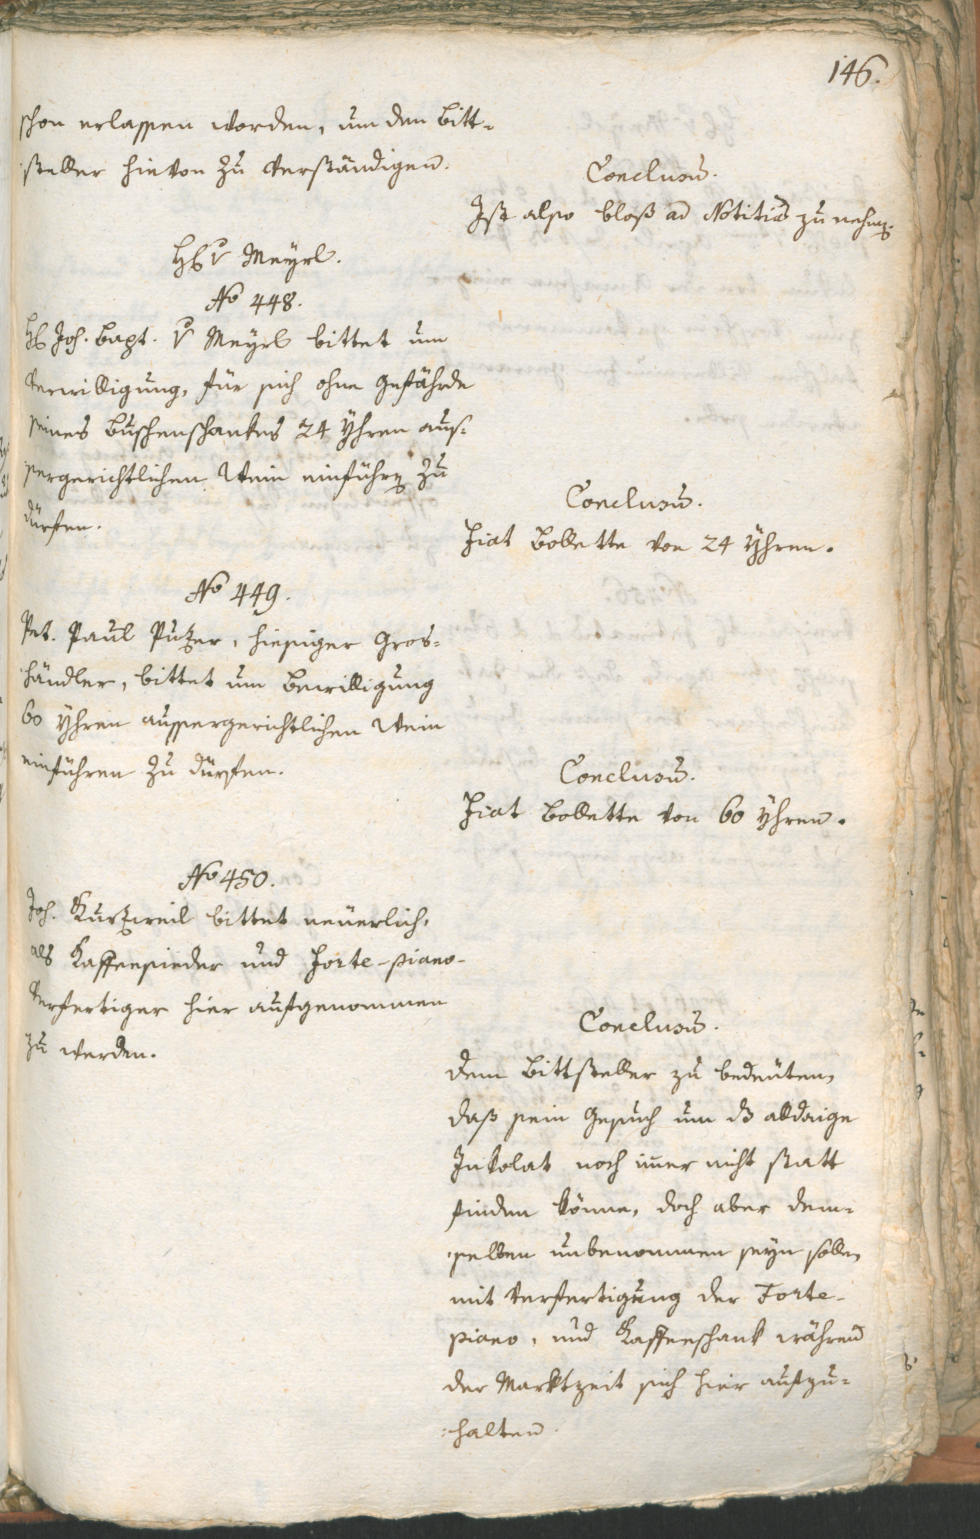 146.
schon erlassen worden, um den Bitt-
steller hievon zu verständigen.
Conclusū.
Ist also bloß ad Notitiā zu nehmen.
H. v Meyrl.
No 448.
H. Joh. Bapt. v Meyrl bittet um
Verwilligung, für sich ohne Gefährde
seines Buschenschankes 24 Yhren aus-
sergerichtlichen Wein einführen zu
dürfen.
Conclusū.
Fiat Bollette von 24 Yhren.
No 449.
Pet. Paul Putzer, hiesiger Gros-
händler, bittet um Bewilligung
60 Yhren aussergerichtlichen Wein
einführen zu dürfen.
Conclusū.
Fiat Bollette von 60 Yhren.
No 450.
Joh. Kurzweil bittet neuerlich,
als Kaffeesieder und Forte-piano-
Verfertiger hier aufgenommen
zu werden.
Conclusū.
Dem Bittsteller zu bedeuten,
daß sein Gesuch um dz alldaige
Inkolat noch im̄er nicht statt
finden könne, doch aber dem-
selben unbenommen seyn solle,
mit Verfertigung der Forte-
piano, und Kaffeeschank während
der Marktzeit sich hier aufzu-
halten.